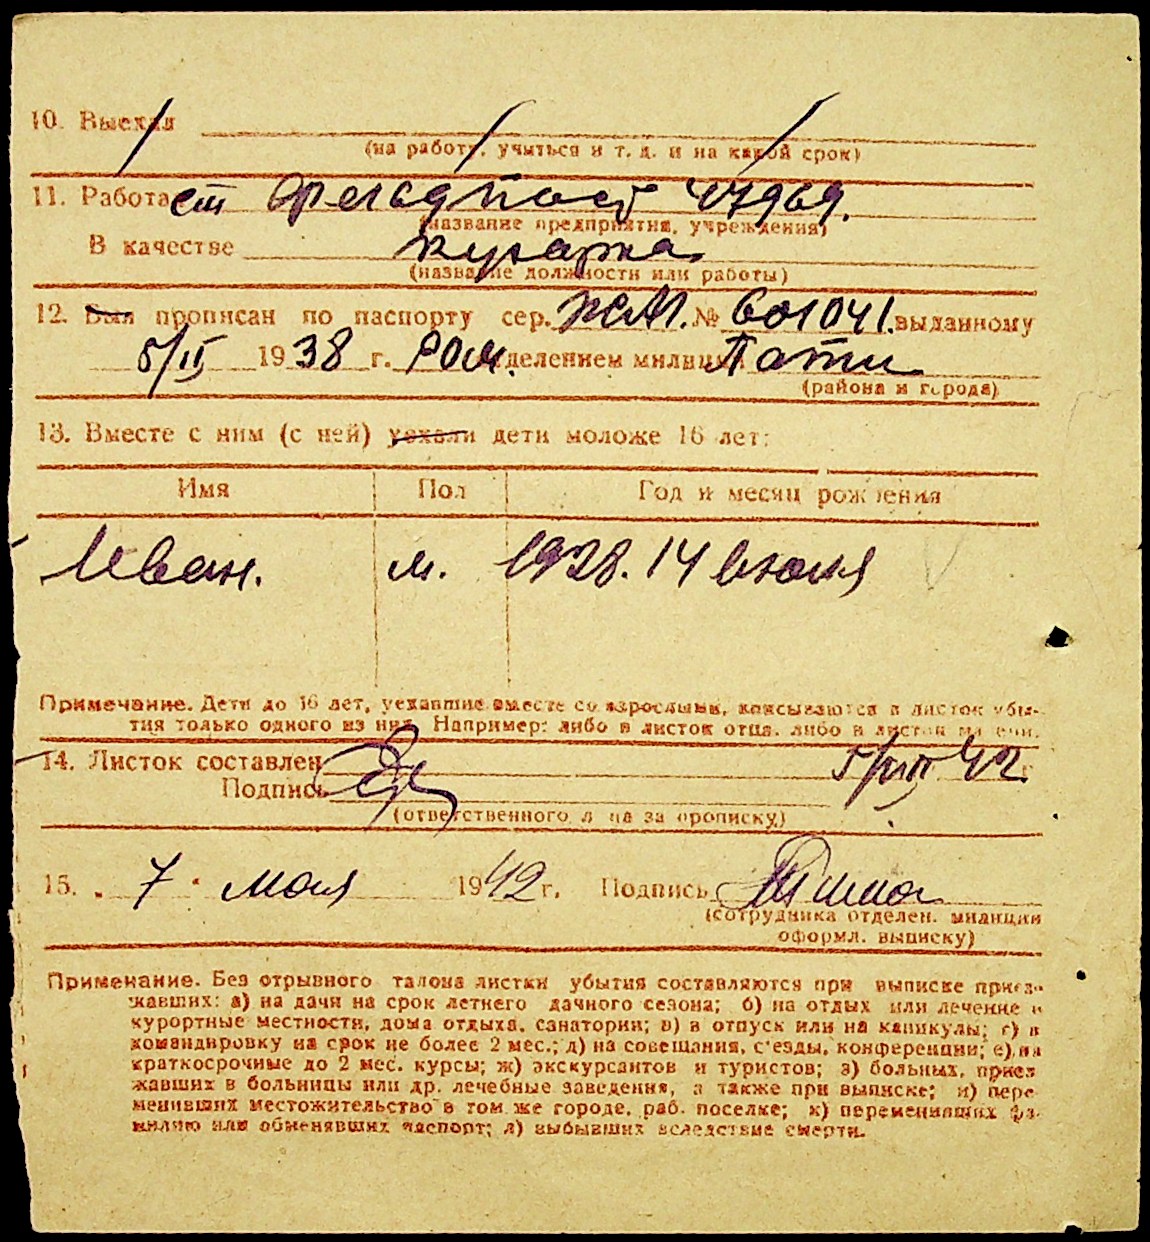 10. Выехал
(на работу, учиться и т. д. и на какой срок)
11. Работа ст
(название предприятия, учреждения)
В качестве кухарка
(название должности или работы)
12. Был прописан по паспорту сер. № 601041. выданному
5/II 1938 г. РОМ. делением милиции Поти
(района и города)
13. Вместе с ним (с ней) уехали дети моложе 16 лет:
Имя Пол Год и месяц рождения
Иван. м. 1928. 14 июля
Примечание. Дети до 16 лет, уехавшие вместе со взрослыми, вписываются в листок убы-
тия только одного из них. Например: либо в листок отца, либо в листок матери.
14. Листок составлен 42 г.
Подпись
(ответственного лица за прописку)
15. " 7 " мая 1942 г. Подпись
(сотрудника отделен. милиции
оформл. выписку)
Примечание. Без отрывного талона листки убытия составляются при выписке приез-
жавших: а) на дачи на срок летнего дачного сезона; б) на отдых или лечение в
курортные местности, дома отдыха, санатории; в) в отпуск или на каникулы; г) в
командировку на срок не более 2 мес.; д) на совещания, с'езды, конференции; е) на
краткосрочные до 2 мес. курсы; ж) экскурсантов и туристов; з) больных, приез
жавших в больницы или др. лечебные заведения, а также при выписке; и) пере
менивших местожительство в том же городе, раб. поселке; к) переменивших фа-
милию или обменявших паспорт; л) выбывших вследствие смерти.